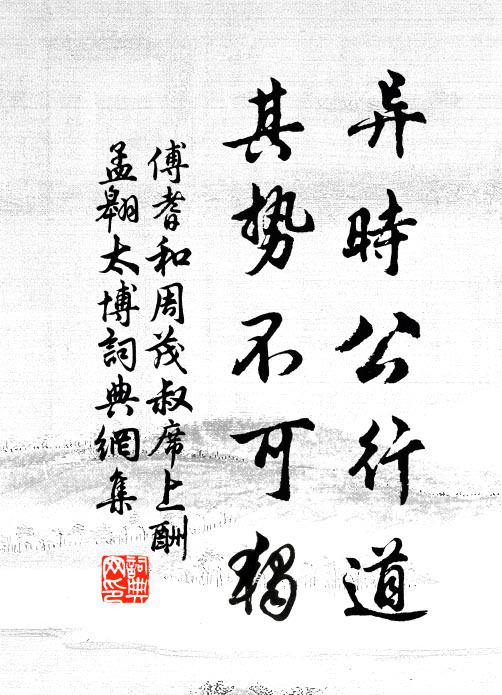 异時公行道
其势不可獨
傅耆和周茂叔席上酬
孟翱太博詞典網集
詞典
网印